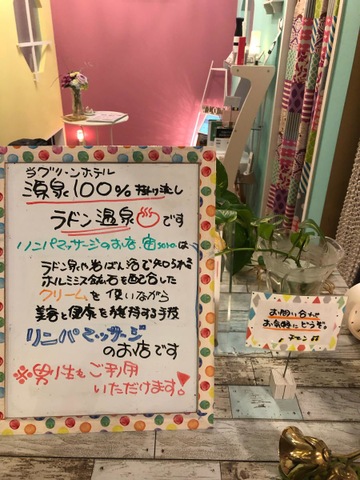 当グリーンホテル
源泉100%掛け流し
ラドン温泉♨です
リンパマッサージのお店
ラドン泉や岩ばん浴で知られる
ホルミシス鉱石を配合した
クリームを使いながら
美容と健康を維持する手技
リンパマッサージ
のお店です
※男性もご利用
いただけます!
お問い合わせ
お気軽にどうぞ。